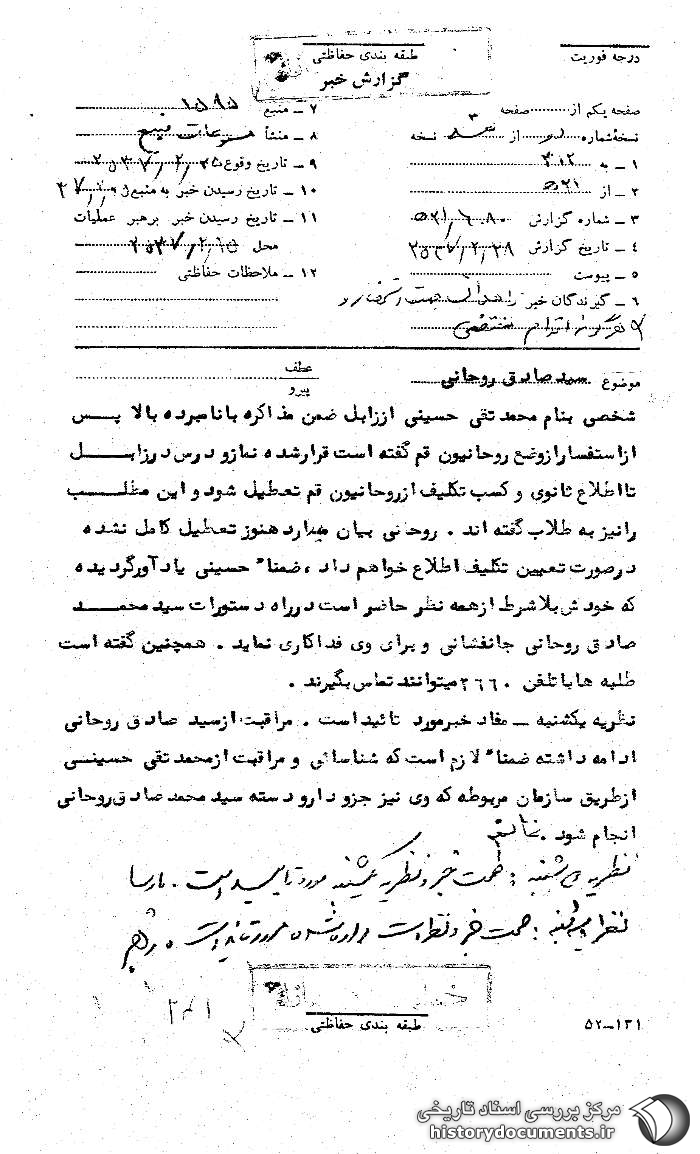 درجه فوریت
طبقه بندی حفاظتی
گزارش خبر
صفحه یکم از صفحه
نسخهٔ شماره از نسخه
۱ ـ به ۳۱۲
۲ ـ از ۵۲۱
۳ ـ شماره گزارش
۴ ـ تاریخ گزارش ۲۵۳۷/۲/۲۸
۵ ـ پیوست
۶ ـ گیرندگان خبر
هرگونه اقدام مقتضی
۷ ـ منبع
۸ ـ منشأ مسموعات منبع
۹ ـ تاریخ وقوع
۱۰ ـ تاریخ رسیدن خبر به منبع
۱۱ ـ تاریخ رسیدن خبر برهبر عملیات
محل
۱۲ ـ ملاحظات حفاظتی
موضوع سید صادق روحانی
عطف
پیرو
شخصی بنام محمد تقی حسینی اززابل ضمن مذاکره با نامبرده بالا پس
ازاستفسارازوضع روحانیون قم گفته است قرارشده نمازو درس درزابل
تا اطلاع ثانوی و کسب تکلیف ازروحانیون قم تعطیل شود و این مطلب
رانیز به طلاب گفته اند . روحانی بیان میدارد هنوز تعطیل کامل نشده
درصورت تعیین تکلیف اطلاع خواهم داد ، ضمنا" حسینی یادآورگردیده
که خودش بلاشرط ازهمه نظر حاضر است درراه دستورات سید محمد
صادق روحانی جانفشانی و برای وی فداکاری نماید . همچنین گفته است
طلبه ها با تلفن ۲۶۶۰ میتوانند تماس بگیرند .
نظریه یکشنبه ـ مفاد خبرمورد تائید است . مراقبت ازسید صادق روحانی
ادامه داشته ضمنا" لازم است که شناسائی و مراقبت ازمحمد تقی حسینی
ازطریق سازمان مربوطه که وی نیز جزو دارودسته سید محمد صادق روحانی
انجام شود .
نظریه سه شنبه : صحت خبر و نظریه یکشنبه مورد تایید است . پارسا
نظریه چهارشنبه : صحت خبر و نظرات مورد تائید است
طبقه بندی حفاظتی
۵۲ـ۱۳۱
مرکز بررسی اسناد تاریخی
historydocuments.ir